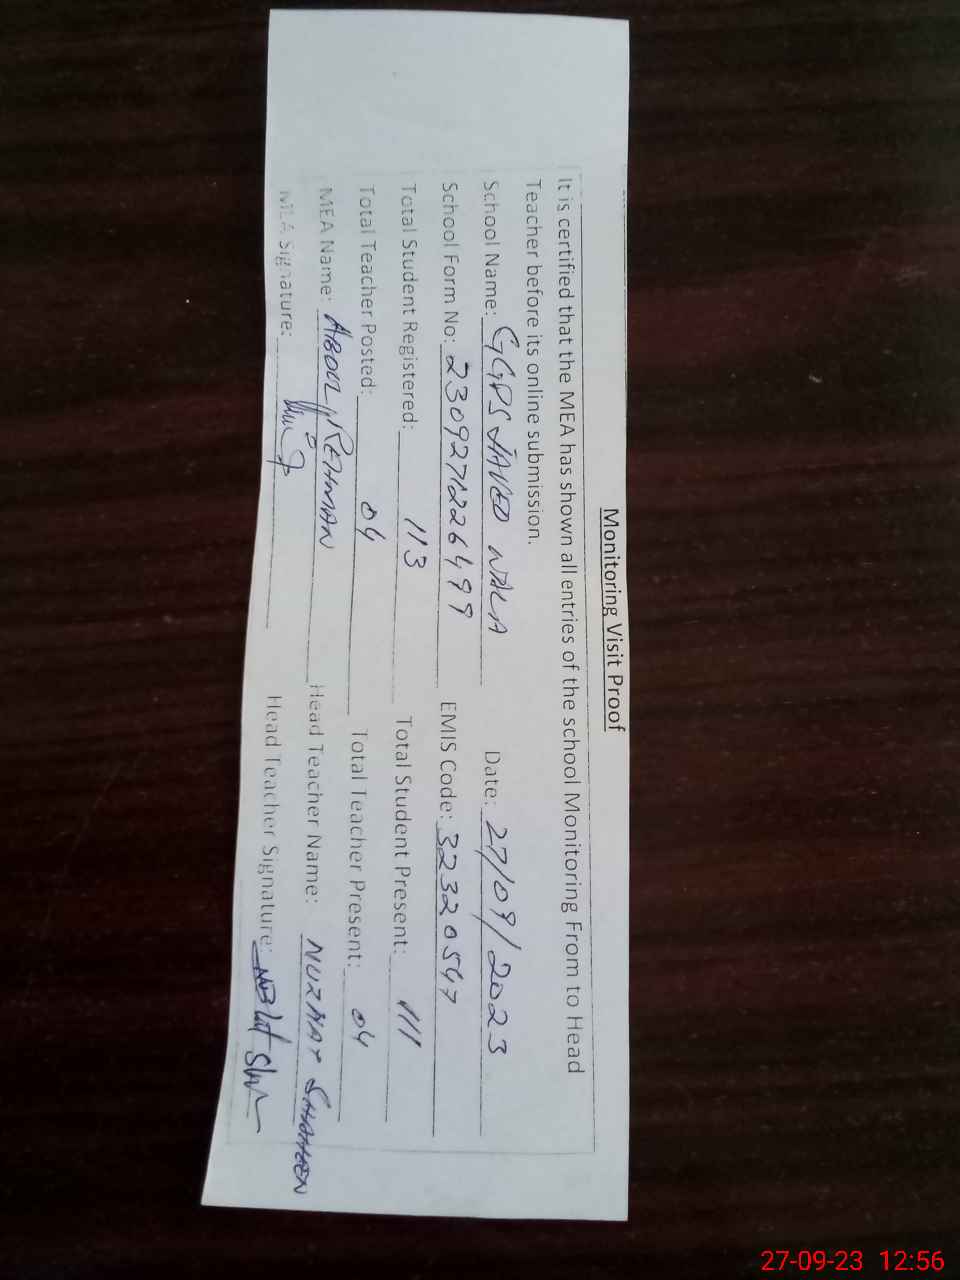 Monitoring Visit Proof
It is certified that the MEA has shown all entries of the school Monitoring From to Head
Teacher before its online submission.
School Name: GGPS JAVED WALA Date: 27/09/2023
School Form No: 2309271226499 EMIS Code: 32320547
Total Student Registered: 113 Total Student Present: 111
Total Teacher Posted: 04 Total Teacher Present: 04
MEA Name: ABDUL REHMAN Head Teacher Name:
MEA Signature: Head Teacher Signature:
27-09-23 12:56